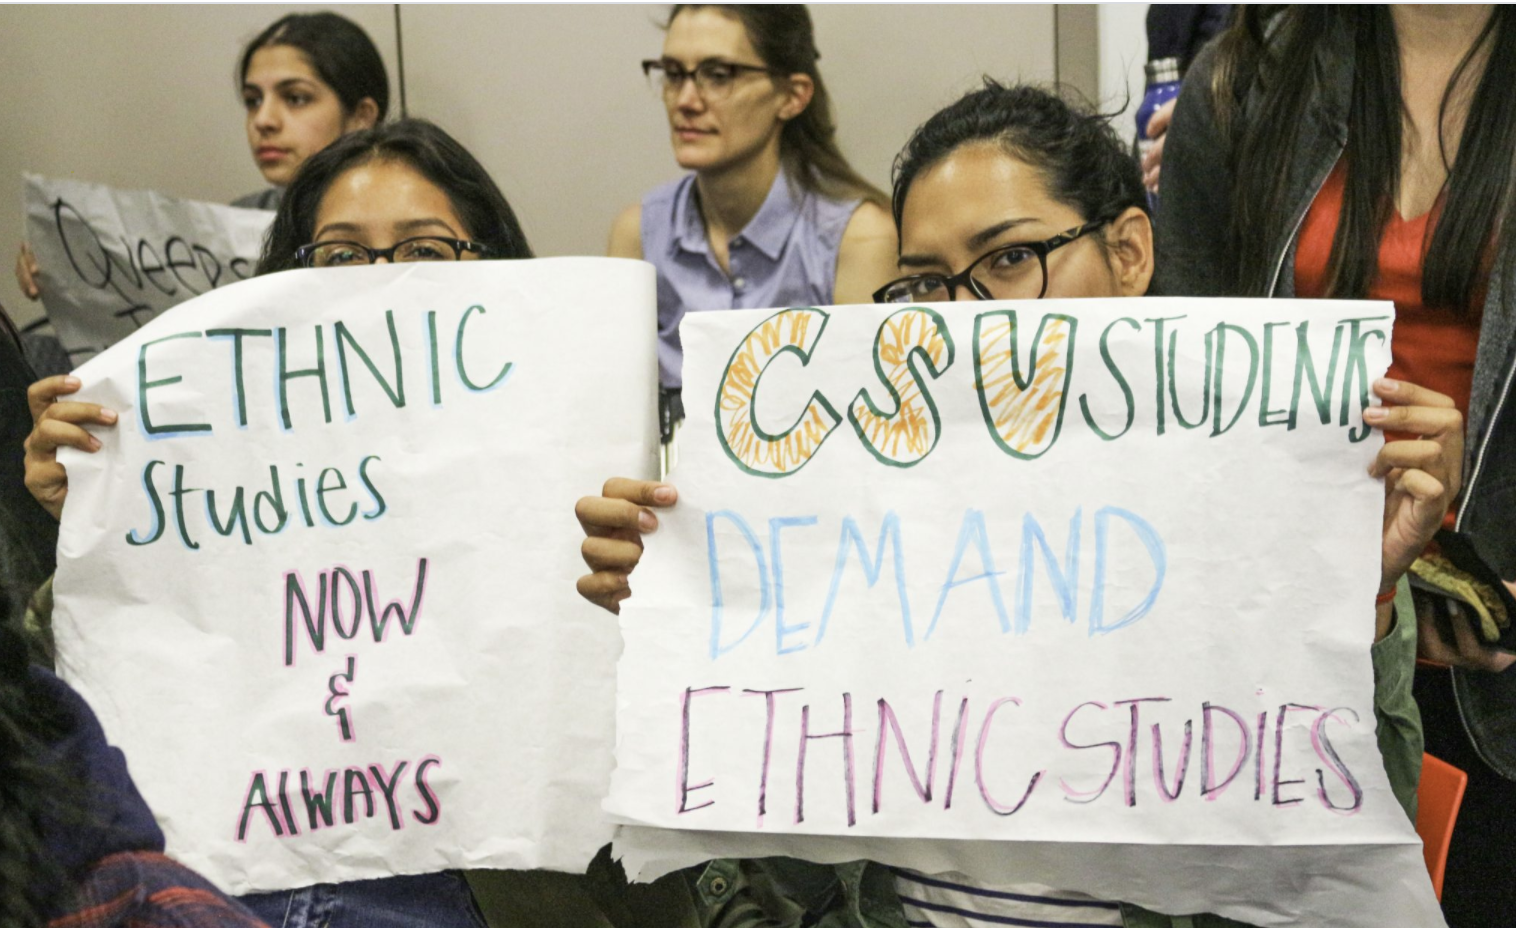 QUEERS
ETHNIC
Studies
NOW
&
AlWAYS
CSU STUDENTS
DEMAND
ETHNIC STUDIES